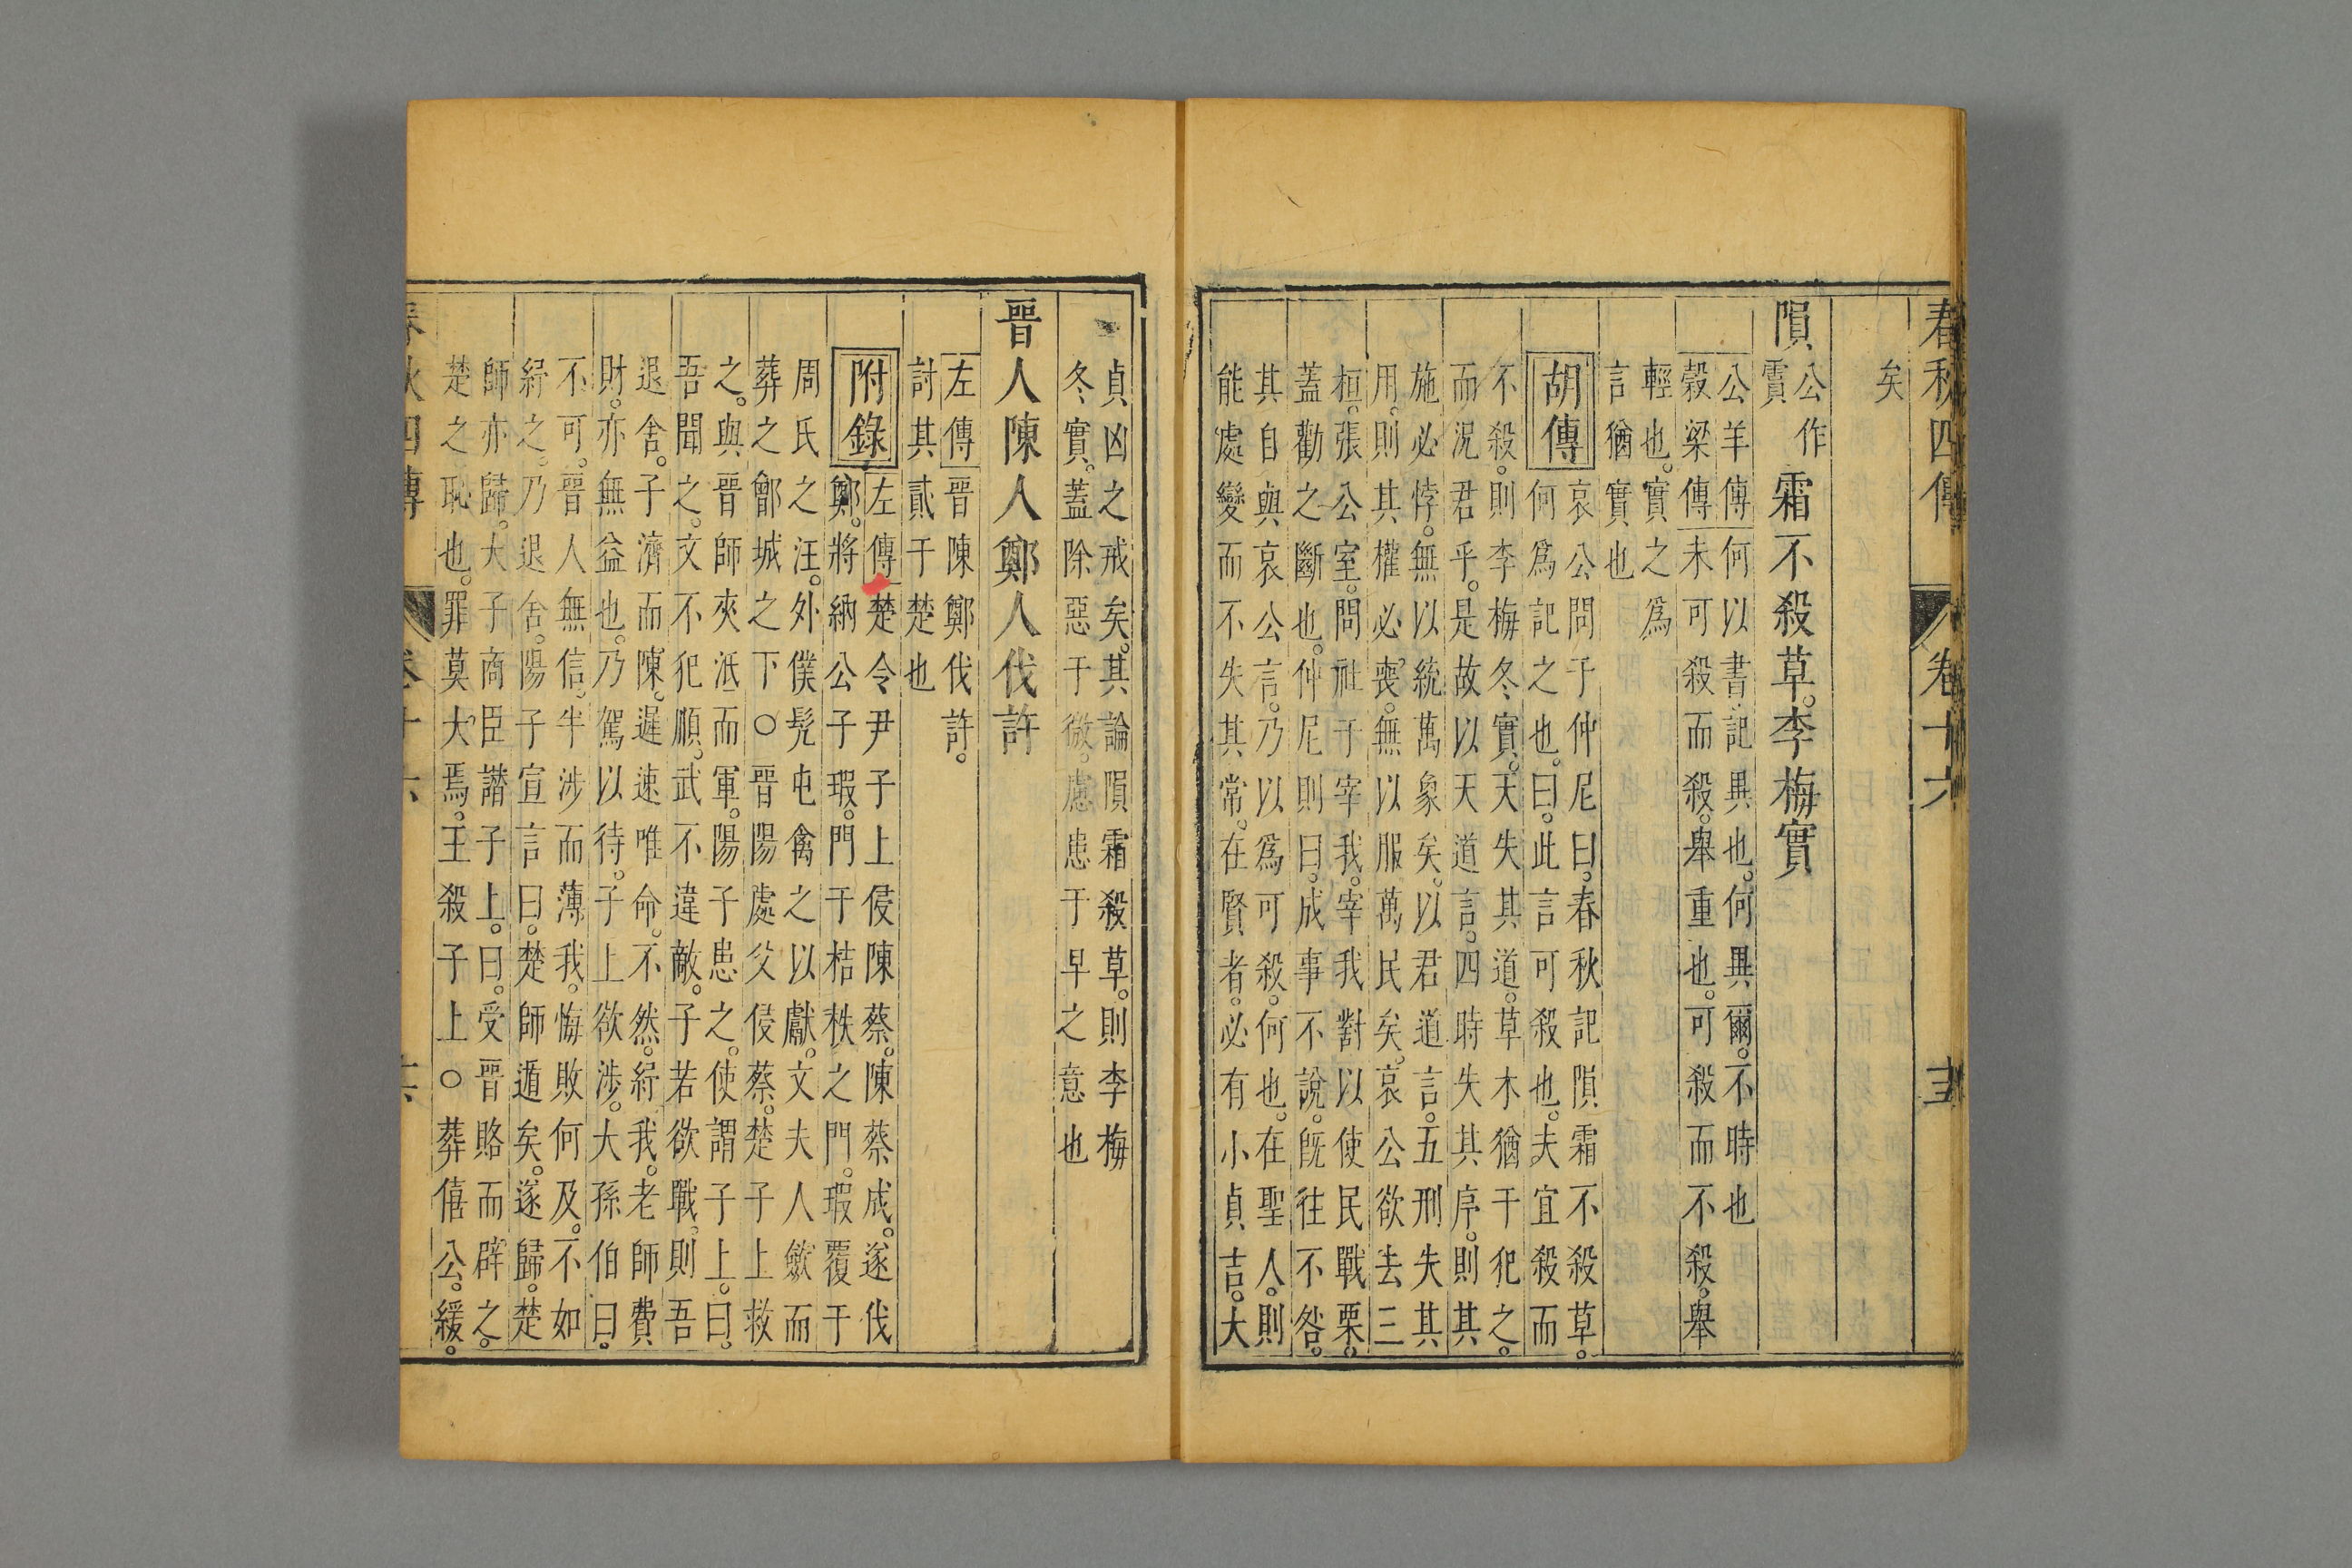 春秋四傳 卷十六
矣
隕公作霣霜不殺草。李梅實
公羊傳何以書。記異也。何異爾。不時也
穀梁傳未可殺而殺。舉重也。可殺而不殺。舉
輕也。實之爲
言猶實也
胡傳哀公問于仲尼曰。春秋記隕霜不殺草。
何爲記之也。曰。此言可殺也。夫宜殺而
不殺。則李梅冬實。天失其道。草木猶干犯之。
而況君乎。是故以天道言。四時失其序。則其
施必悖。無以統萬象矣。以君道言。五刑失其
用。則其權必喪。無以服萬民矣。哀公欲去三
桓。張公室。問社于宰我。宰我對以使民戰栗。
蓋勸之斷也。仲尼則曰。成事不說。既往不咎。
其自與哀公言。乃以爲可殺。何也。在聖人。則
能處變而不失其常。在賢者。必有小貞吉。大
貞凶之戒矣。其論隕霜殺草。則李梅
冬實。蓋除惡于微。慮患于早之意也
晉人陳人鄭人伐許
左傳晉陳鄭伐許。
討其貳于楚也
附錄左傳楚令尹子上侵陳蔡。陳蔡成。遂伐
鄭。將納公子瑕。門于桔柣之門。瑕覆于
周氏之汪。外僕髡屯禽之以獻。文夫人斂而
葬之鄶城之下○晉陽處父侵蔡。楚子上救
之。與晉師夾泜而軍。陽子患之。使謂子上。曰。
吾聞之。文不犯順。武不違敵。子若欲戰。則吾
退舍。子濟而陳。遲速唯命。不然。紓我。老師費
財。亦無益也。乃駕以待。子上欲涉。大孫伯曰。
不可。晉人無信。半涉而薄我。悔敗何及。不如
紓之。乃退舍。陽子宣言曰。楚師遁矣。遂歸。楚
師亦歸。大子商臣譖子上。曰。受晉賂而辟之。
楚之恥也。罪莫大焉。王殺子上○葬僖公。緩。
春秋四傳 卷十六